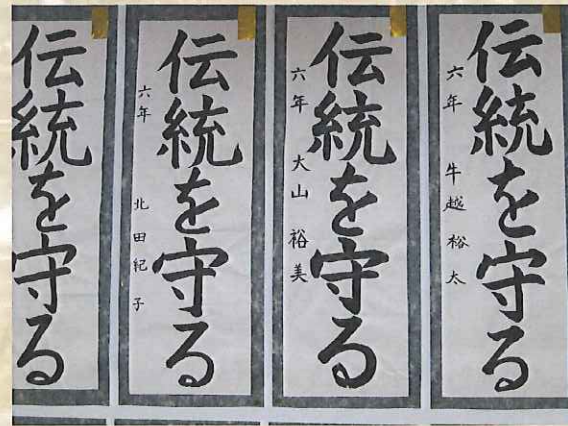 伝統を守る
六年 牛越裕太
伝統を守る
六年 大山裕美
伝統を守る
六年 北田紀子
伝統を守る